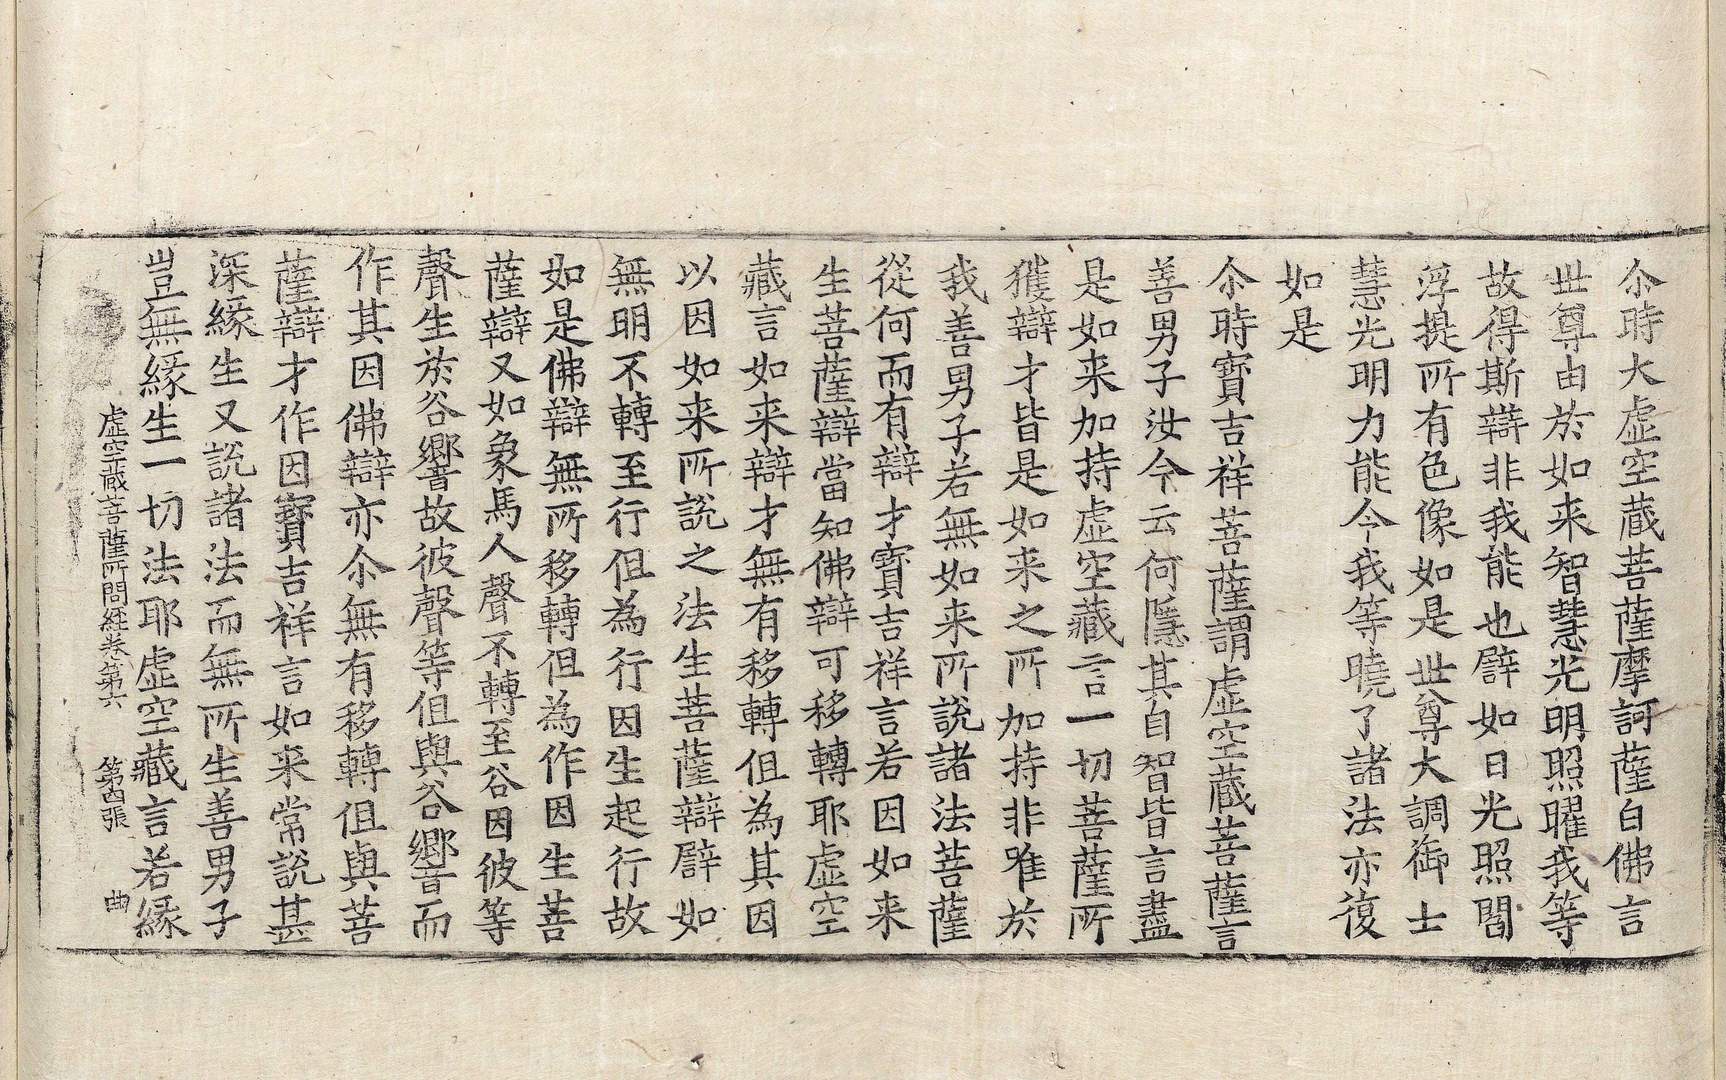 尒時大虛空藏菩薩摩訶薩白佛言
世尊由於如来智慧光明照曜我等
故得斯辯非我能也譬如日光照閻
浮提所有色像如是世尊大調御士
慧光明力能令我等曉了諸法亦復
如是
尒時寶吉祥菩薩謂虛空藏菩薩言
善男子汝今云何隱其自智皆言盡
是如来加持虛空藏言一切菩薩所
獲辯才皆是如来之所加持非唯於
我善男子若無如来所說諸法菩薩
從何而有辯才寶吉祥言若因如来
生菩薩辯當知佛辯可移轉耶虛空
藏言如来辯才無有移轉但為其因
以因如来所說之法生菩薩辯譬如
無明不轉至行但為行因生起行故
如是佛辯無所移轉但為作因生菩
薩辯又如象馬人聲不轉至谷因彼等
聲生於谷響故彼聲等但與谷響而
作其因佛辯亦尒無有移轉但與菩
薩辯才作因寶吉祥言如来常說甚
深緣生又說諸法而無所生善男子
豈無緣生一切法耶虛空藏言若緣
虛空藏菩薩所問經卷第六　第四張　曲